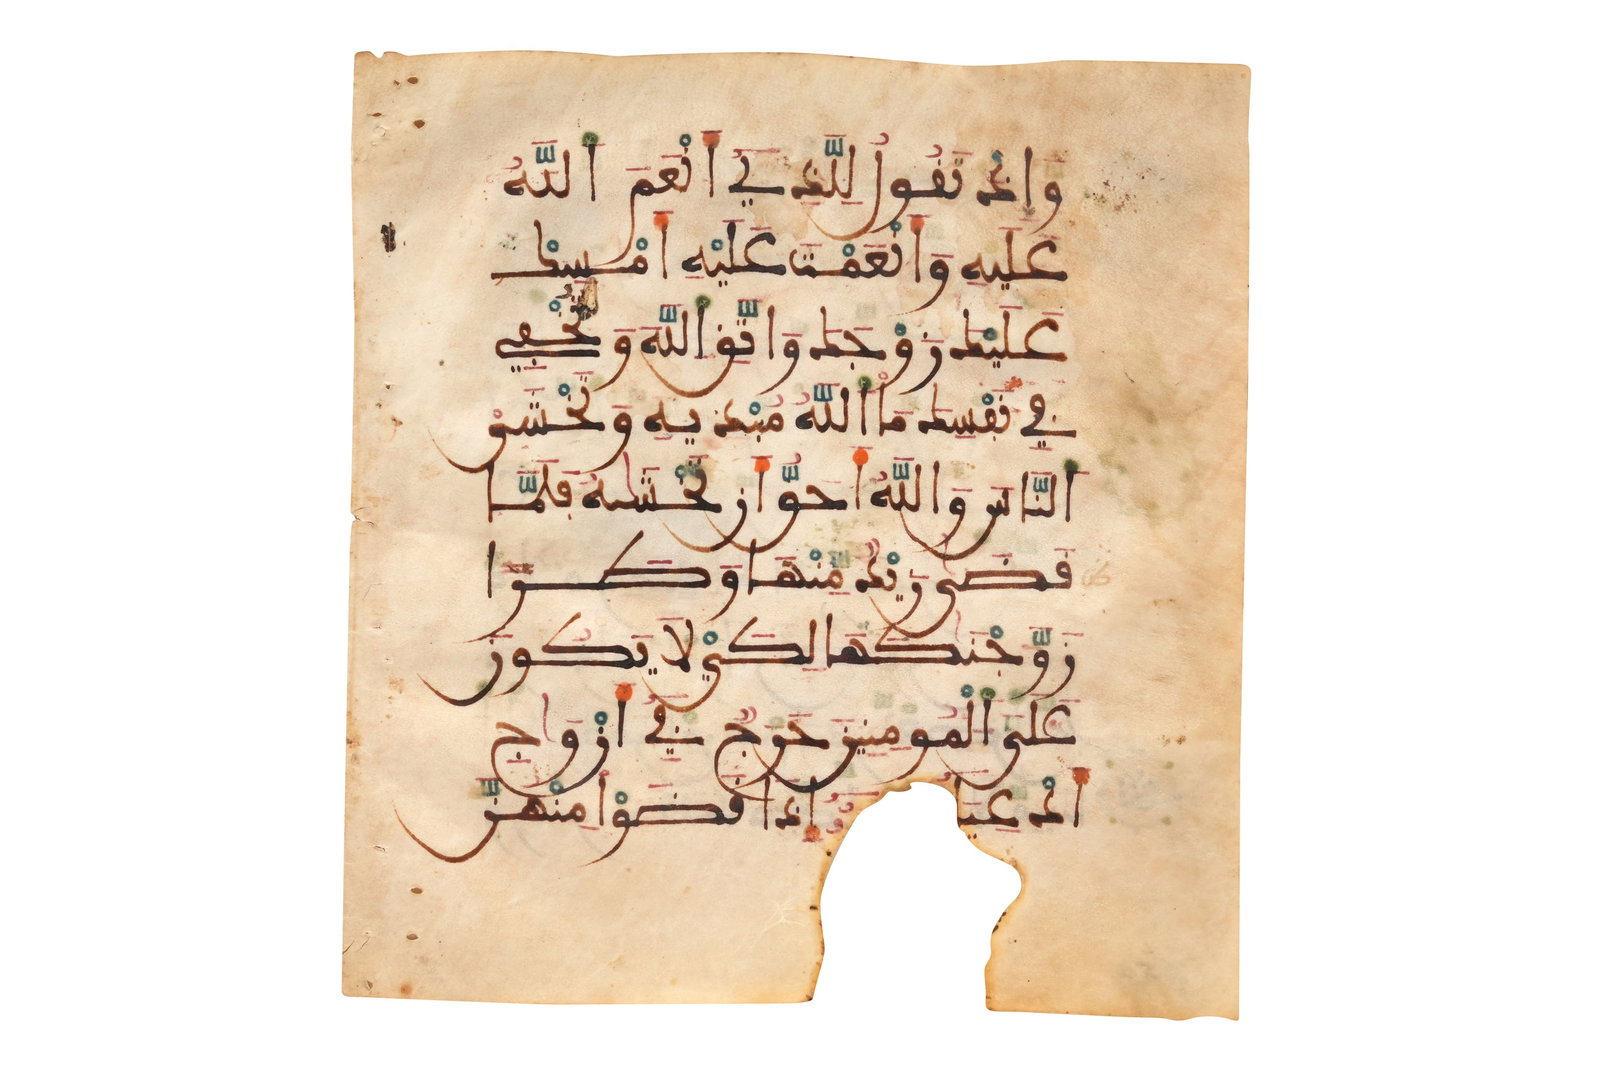 وَإِذْ تَقُولُ لِلَّذِي أَنْعَمَ اللَّهُ
عَلَيْهِ وَأَنْعَمْتَ عَلَيْهِ أَمْسِكْ
عَلَيْكَ زَوْجَكَ وَاتَّقِ اللَّهَ وَتُخْفِي
فِي نَفْسِكَ مَا اللَّهُ مُبْدِيهِ وَتَخْشَى
النَّاسَ وَاللَّهُ أَحَقُّ أَن تَخْشَيهُ فَلَمَّا
قَضَى زَيْدٌ مِّنْهَا وَطَرًا
زَوَّجْنَكَهَا لِكَيْ لَا يَكُونَ
عَلَى الْمُومِنِينَ حَرَجٌ فِي أَزْوَاجِ
أَدْعِيَا إِذَا قَضَوْا مِنْهُنَّ